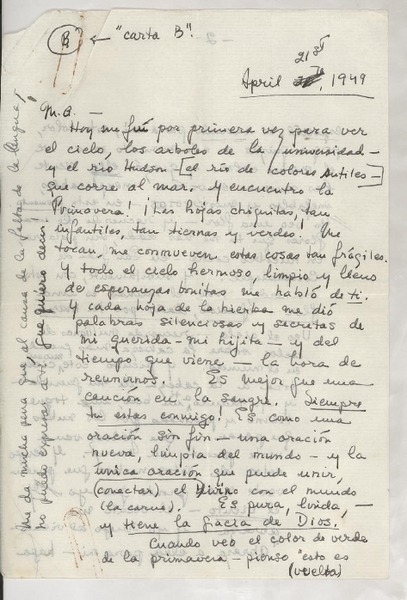 B ← "carta B".
April 21st, 1949
M. G. —
Hoy me fuí por primera vez para ver
el cielo, los arboles de la universidad —
y el río Hudson [el río de colores sutiles —]
que corre al mar. Y encuentro la
Primavera! ¡Las hojas chiquitas, tan
infantiles, tan tiernas y verdes! Me
tocan, me conmueven estas cosas tan frágiles.
Y todo el cielo hermoso, limpio y lleno
de esperanzas bonitas me habló de ti.
Y cada hoja de la hierba me dió
palabras silenciosas y secretas de
mi querida — mi hijita — y del
tiempo que viene — la hora de
reunirnos. Es mejor que una
canción en la sangre. Siempre
tu estas conmigo! Es como una
oración sin fin — una oración
nueva, limpia del mundo — y la
única oración que puede unir,
(conectar) el Divino con el mundo
(la carne). Es pura, linda, —
y tiene la gracia de Dios.
Cuando veo el color de verde
de la primavera — pienso "esto es
(vuelta)
Me da mucha pena que, al causa de la falta de la lengua,
no puedo expresar a ti que quiero decir!